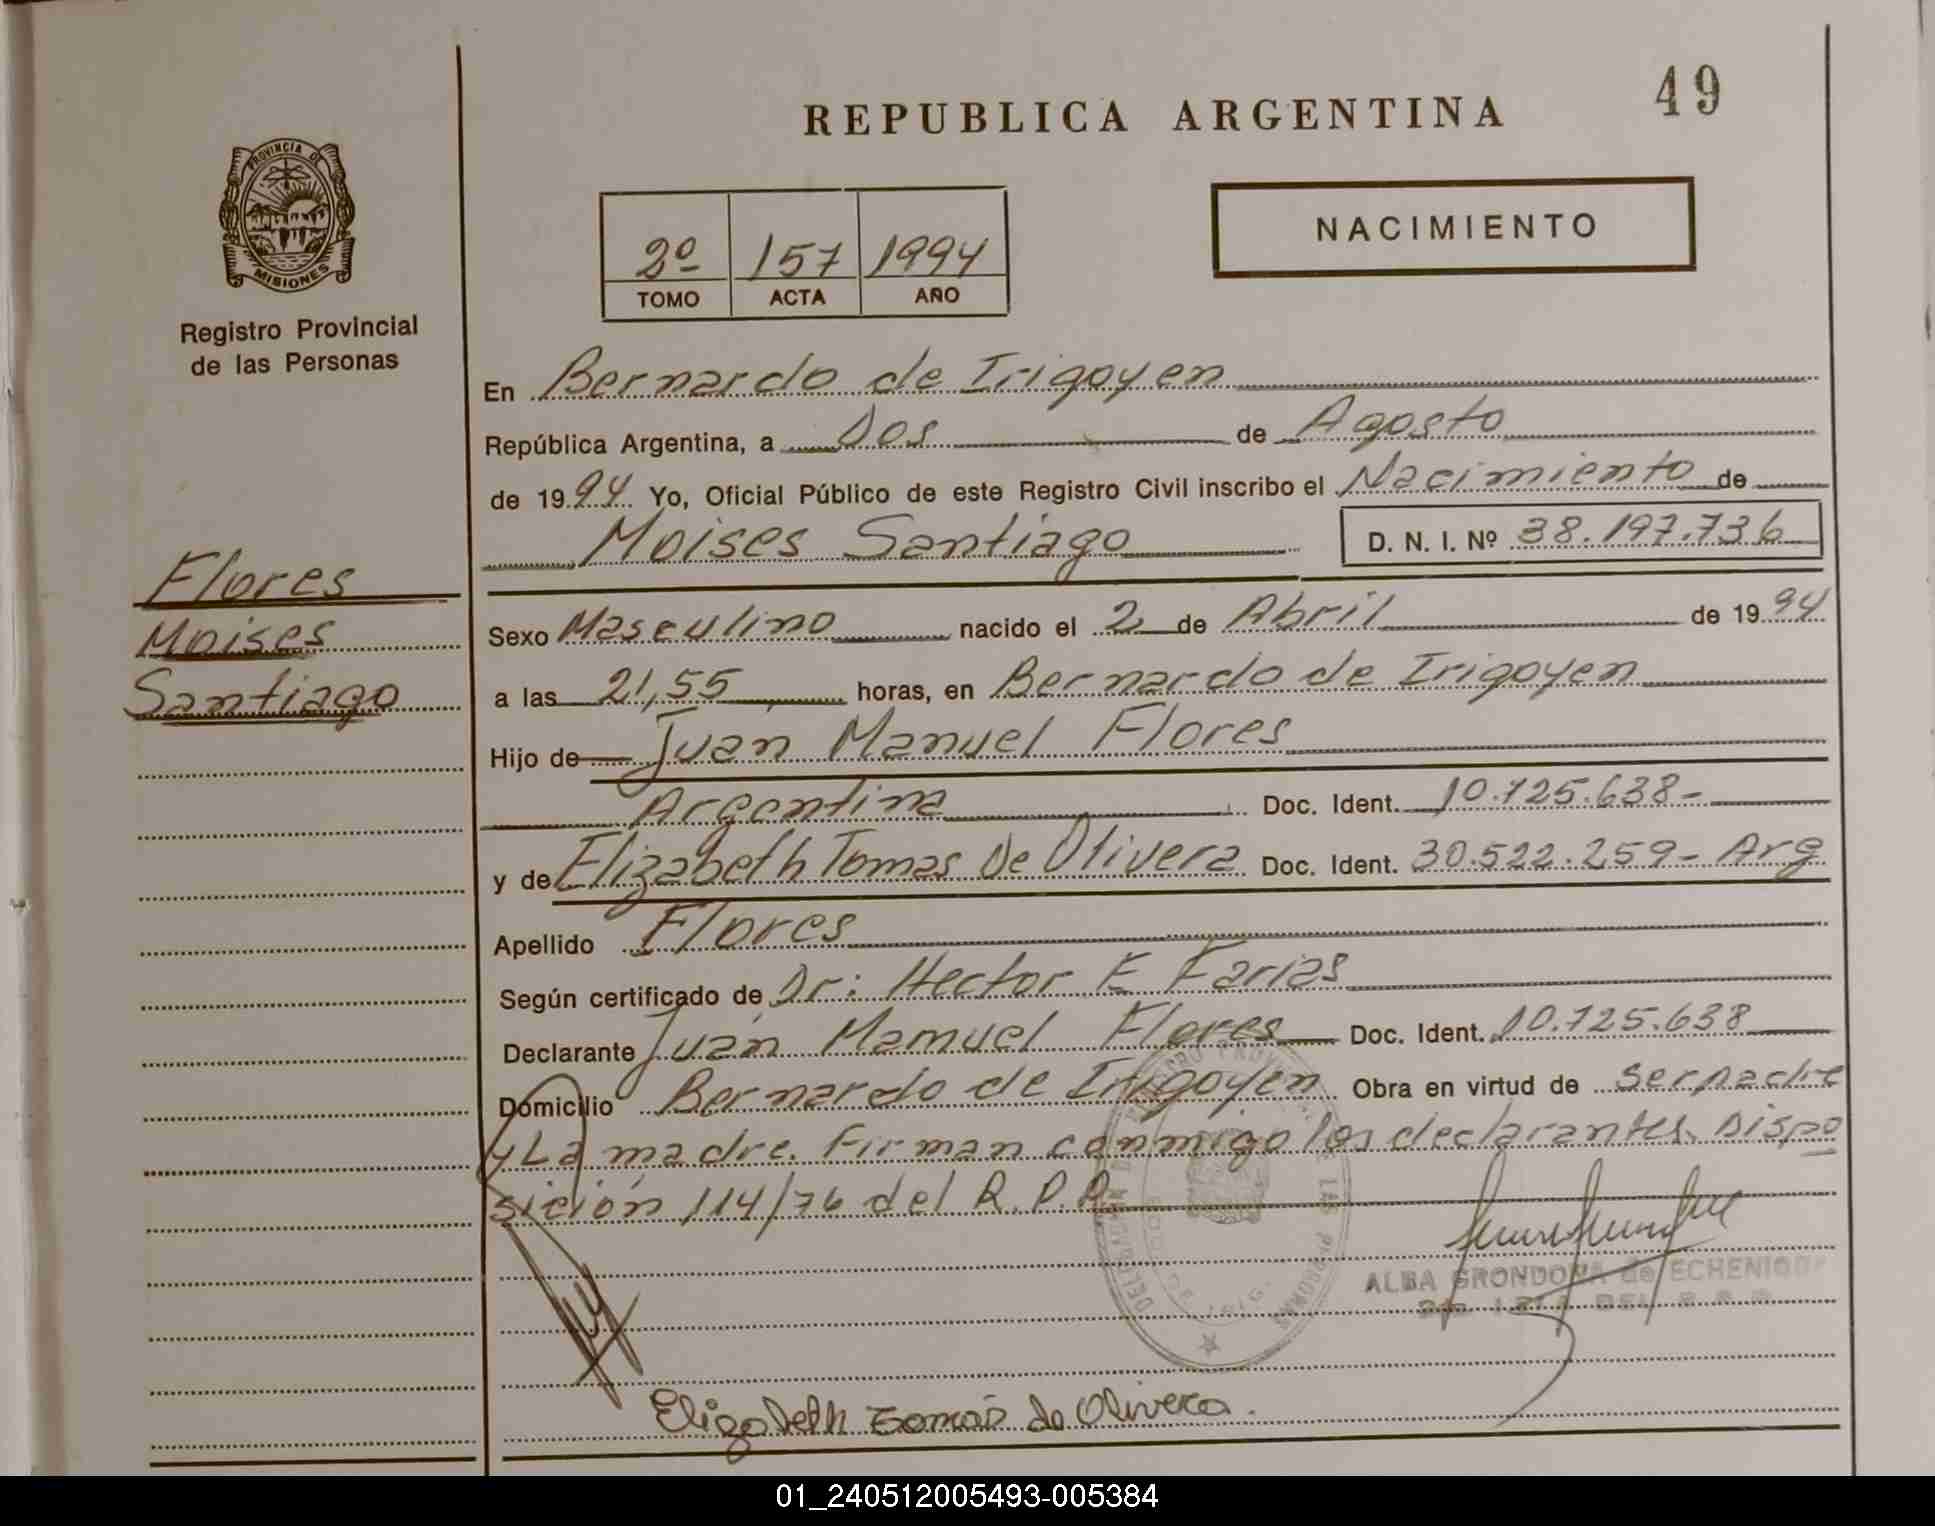 49
REPUBLICA ARGENTINA
PROVINCIA DE
MISIONES
Registro Provincial
de las Personas
NACIMIENTO
2º 157 1994
TOMO ACTA AÑO
En Bernardo de Irigoyen
República Argentina, a Dos de Agosto
de 1994 Yo, Oficial Público de este Registro Civil inscribo el Nacimiento de
Moises Santiago D. N. I. Nº 38.197.736
Flores
Moises
Santiago
Sexo Masculino nacido el 2 de Abril de 1994
a las 21,55 horas, en Bernardo de Irigoyen
Hijo de Juan Manuel Flores
Argentina Doc. Ident. 10.725.638-
y de Elizabeth Tomas De Olivera Doc. Ident. 30.522.259- Arg
Apellido Flores
Según certificado de Dr: Hector E Farias
Declarante Juan Manuel Flores Doc. Ident. 10.725.638
Domicilio Bernardo de Irigoyen Obra en virtud de ser padre
y La madre. Firman conmigo los declarantes. Dispo
sición 114/76 del R.P.P.
ALBA GRONDONA de ECHENIQUE
Elizabeth Tomas de Olivera.
01_240512005493-005384